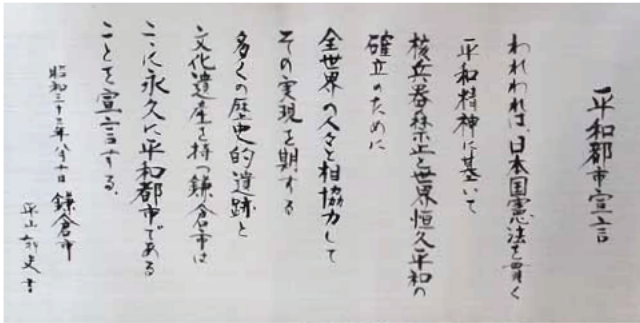 平和都市宣言
われわれは、日本国憲法を貫く
平和精神に基いて
核兵器禁止と世界恒久平和の
確立のために
全世界の人々と相協力して
その実現を期する
多くの歴史的遺跡と
文化遺産を持つ鎌倉市は
ここに永久に平和都市である
ことを宣言する。
昭和三十三年八月十日 鎌倉市
平山郁夫書